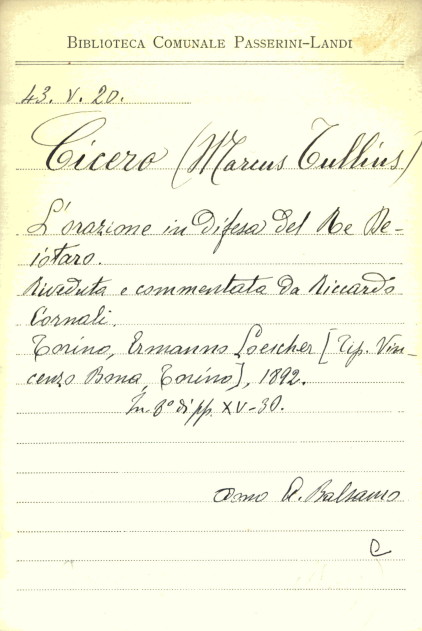 BIBLIOTECA COMUNALE PASSERINI-LANDI
43. V. 20.
Cicero (Marcus Tullius)
L'orazione in difesa del Re De-
iotaro.
Riveduta e commentata da Riccardo
Cornali.
Torino, Ermanno Loescher [Tip. Vin-
cenzo Bona, Torino], 1892.
In 8° di pp. XV-30.
Dono A. Balsamo
C